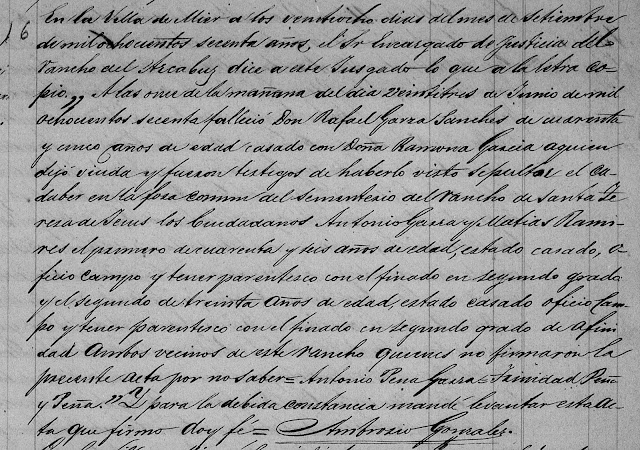 6 En la Villa de Mier a los veintiocho dias del mes de Setiembre
de mil ochocientos secenta años, el Sr Encargado de Justicia del
rancho del Arcabuz dice a este Jusgado lo que a la letra co-
pio „ A las once de la mañana del dia veintitres de Junio de mil
ochocientos secenta fallecio Don Rafael Garza Sanches de cuarenta
y cinco años de edad casado con Doña Ramona Garcia a quien
dejó viuda y fueron testigos de haberlo visto sepultar el ca-
daber en la fosa comun del sementerio del rancho de Santa Te-
resa de Jesus los Ciudadanos Antonio Garza y Matias Rami-
res el primero de cuarenta y seis años de edad, estado casado, o-
ficio campo y tener parentesco con el finado en segundo grado
y el segundo de treinta años de edad, estado casado oficio Cam-
po y tener parentesco con el finado en segundo grado de afi-
nidad Ambos vecinos de este rancho quienes no firmaron la
presente acta por no saber = Antonio Pena Garza = Trinidad Peña
y Peña." Y para la debida constancia mandé levantar esta Ac-
ta que firmo doy fé = Ambrosio Gonzales.